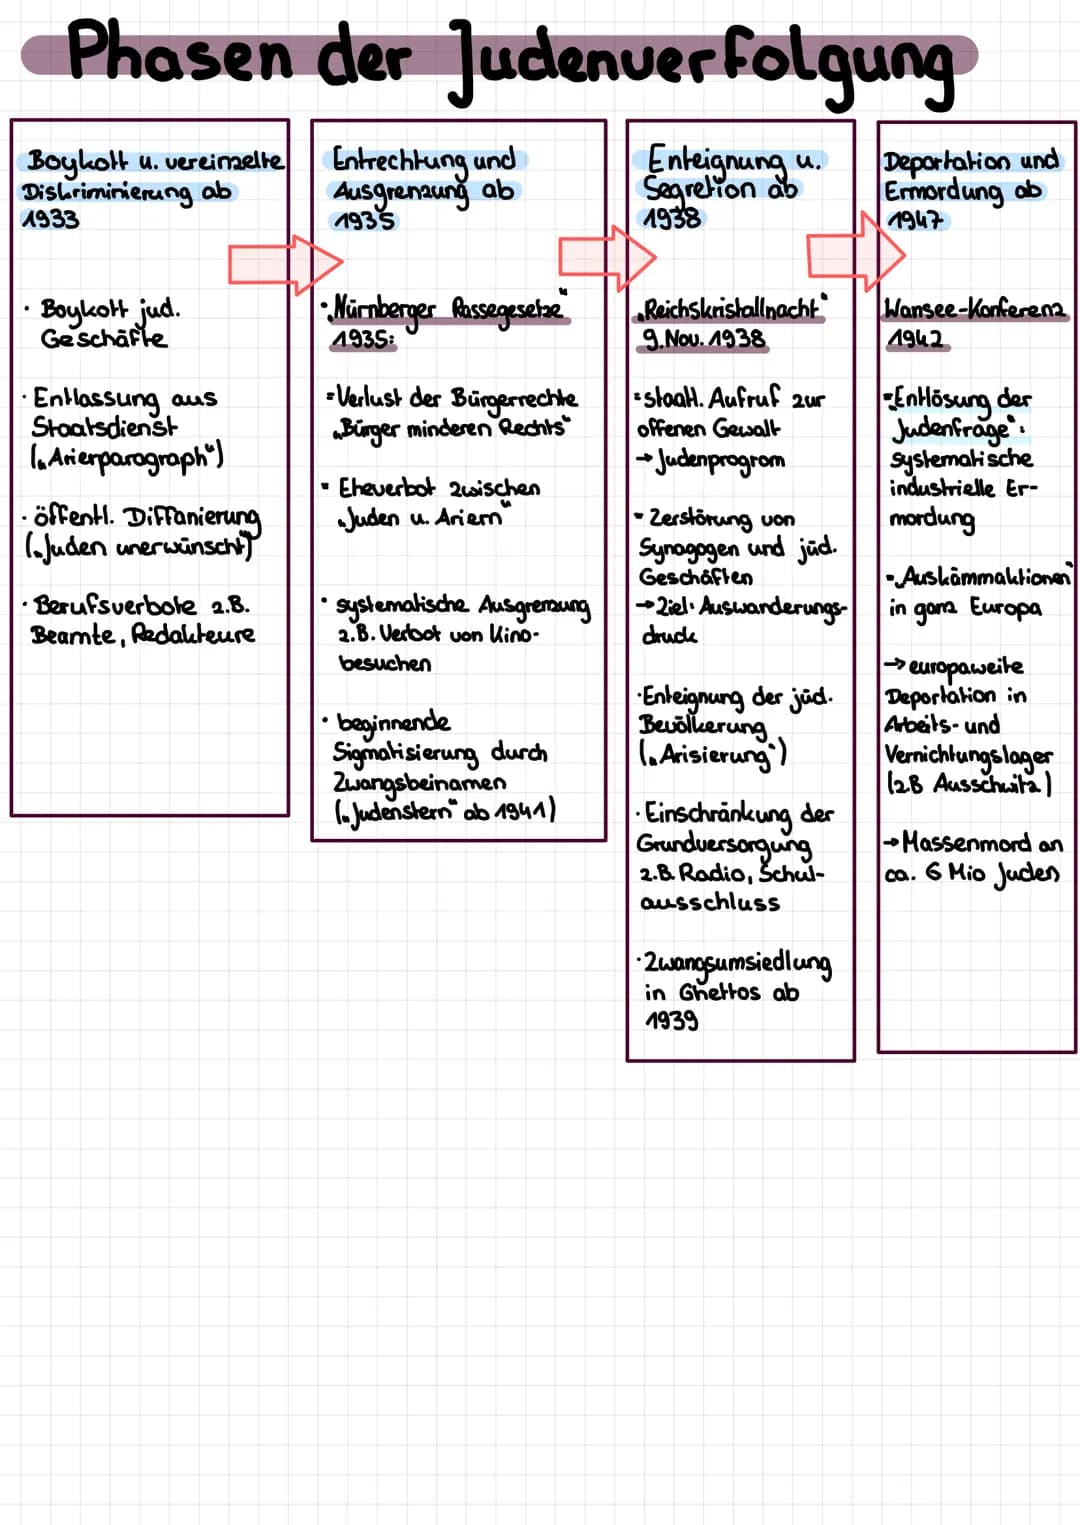 Phasen der Judenverfolgung
Boykott u. vereinzelte
Diskriminierung ab
1933
· Boykott jud.
Geschäfte
· Entlassung aus
Staatsdienst
(„Arierparagraph“)
· öffentl. Diffanierung
(„Juden unerwünscht“)
· Berufsverbote z.B.
Beamte, Redakteure
Entrechtung und
Ausgrenzung ab
1935
· „Nürnberger Rassegesetze“
1935:
· Verlust der Bürgerrechte
„Bürger minderen Rechts“
· Eheverbot zwischen
„Juden u. Ariern“
· systematische Ausgrenzung
z.B. Verbot von Kino-
besuchen
· beginnende
Sigmatisierung durch
Zwangsbeinamen
(„Judenstern“ ab 1941)
Enteignung u.
Segretion ab
1938
„Reichskristallnacht“
9. Nov. 1938
· staatl. Aufruf zur
offenen Gewalt
→ Judenprogrom
· Zerstörung von
Synagogen und jüd.
Geschäften
→ Ziel: Auswanderungs-
druck
· Enteignung der jüd.
Bevölkerung
(„Arisierung“)
· Einschränkung der
Grundversorgung
z.B. Radio, Schul-
ausschluss
· Zwangsumsiedlung
in Ghettos ab
1939
Deportation und
Ermordung ab
1947
Wansee-Konferenz
1942
· „Entlösung der
Judenfrage“:
systematische
industrielle Er-
mordung
· „Auskämmaktionen“
in ganz Europa
→ europaweite
Deportation in
Arbeits- und
Vernichtungslager
(z.B Ausschwitz)
→ Massenmord an
ca. 6 Mio Juden